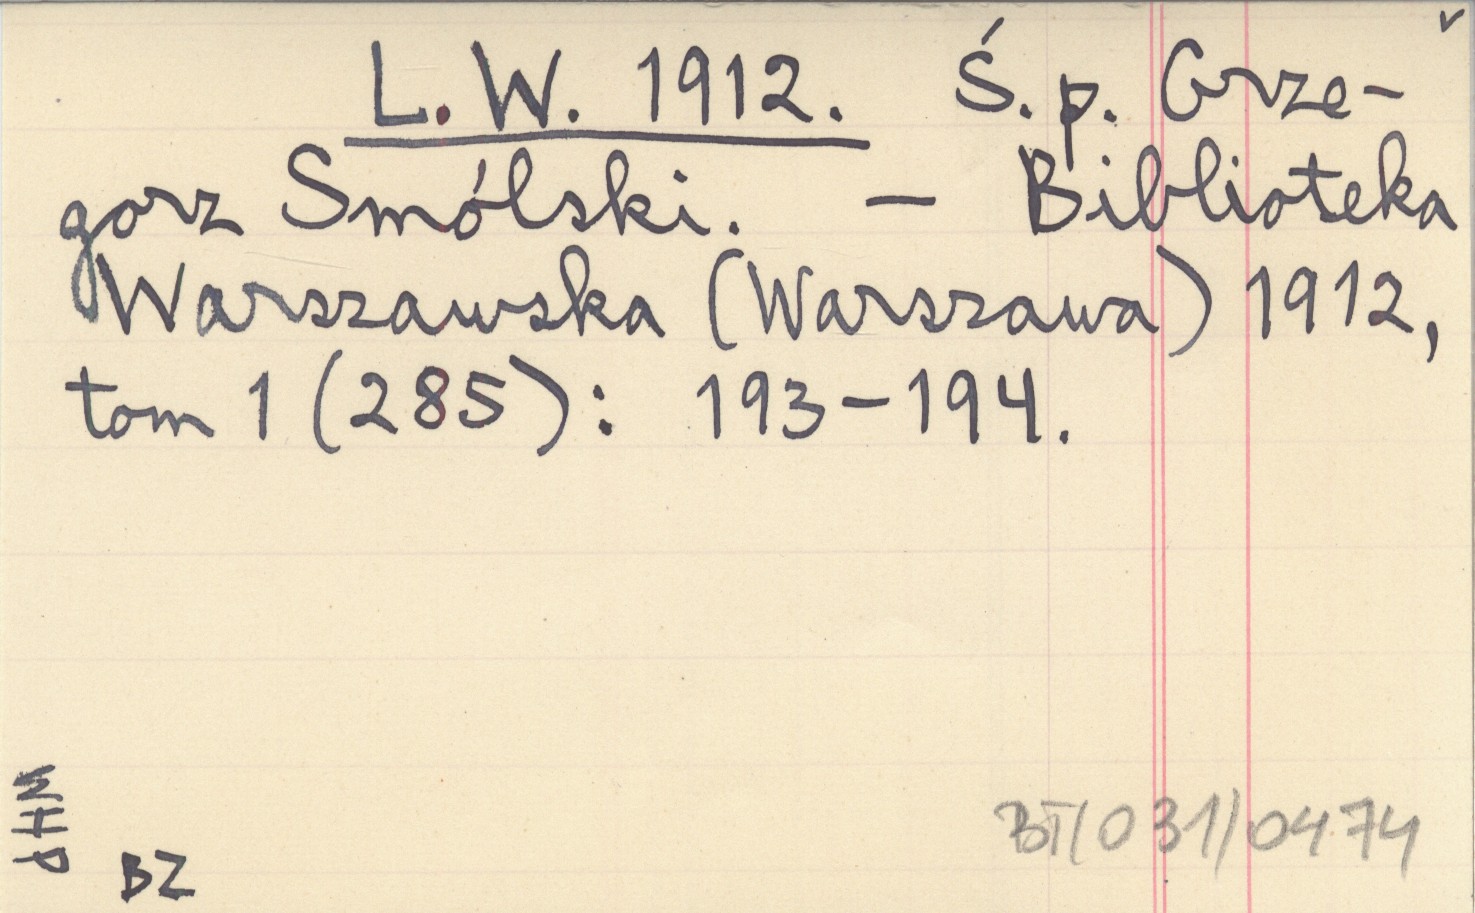 L. W. 1912. Ś. p. Grze-
gorz Smólski. — Biblioteka
Warszawska (Warszawa) 1912,
tom 1 (285): 193-194.
PHM
BZ
BT/031/0474